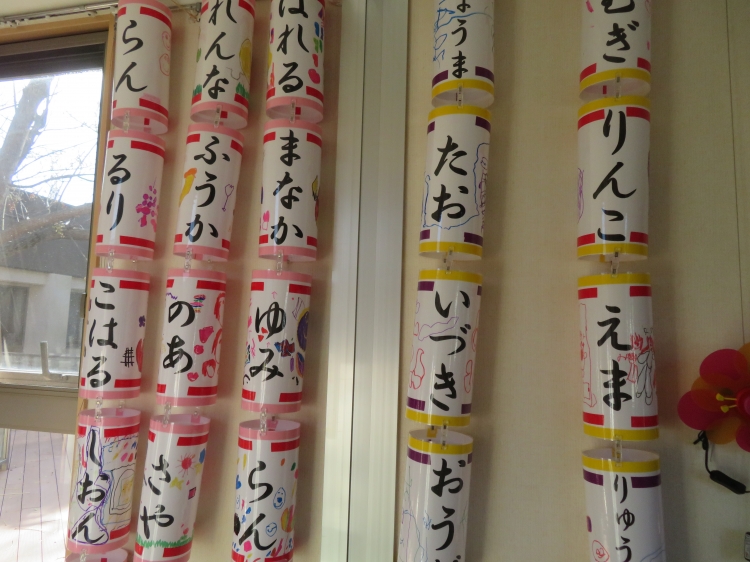 らん
るり
こはる
しおん
れんな
ふうか
のあ
さや
はれる
まなか
ゆみ
らん
ょうま
たお
いづき
おう
むぎ
りんこ
えま
りゅう